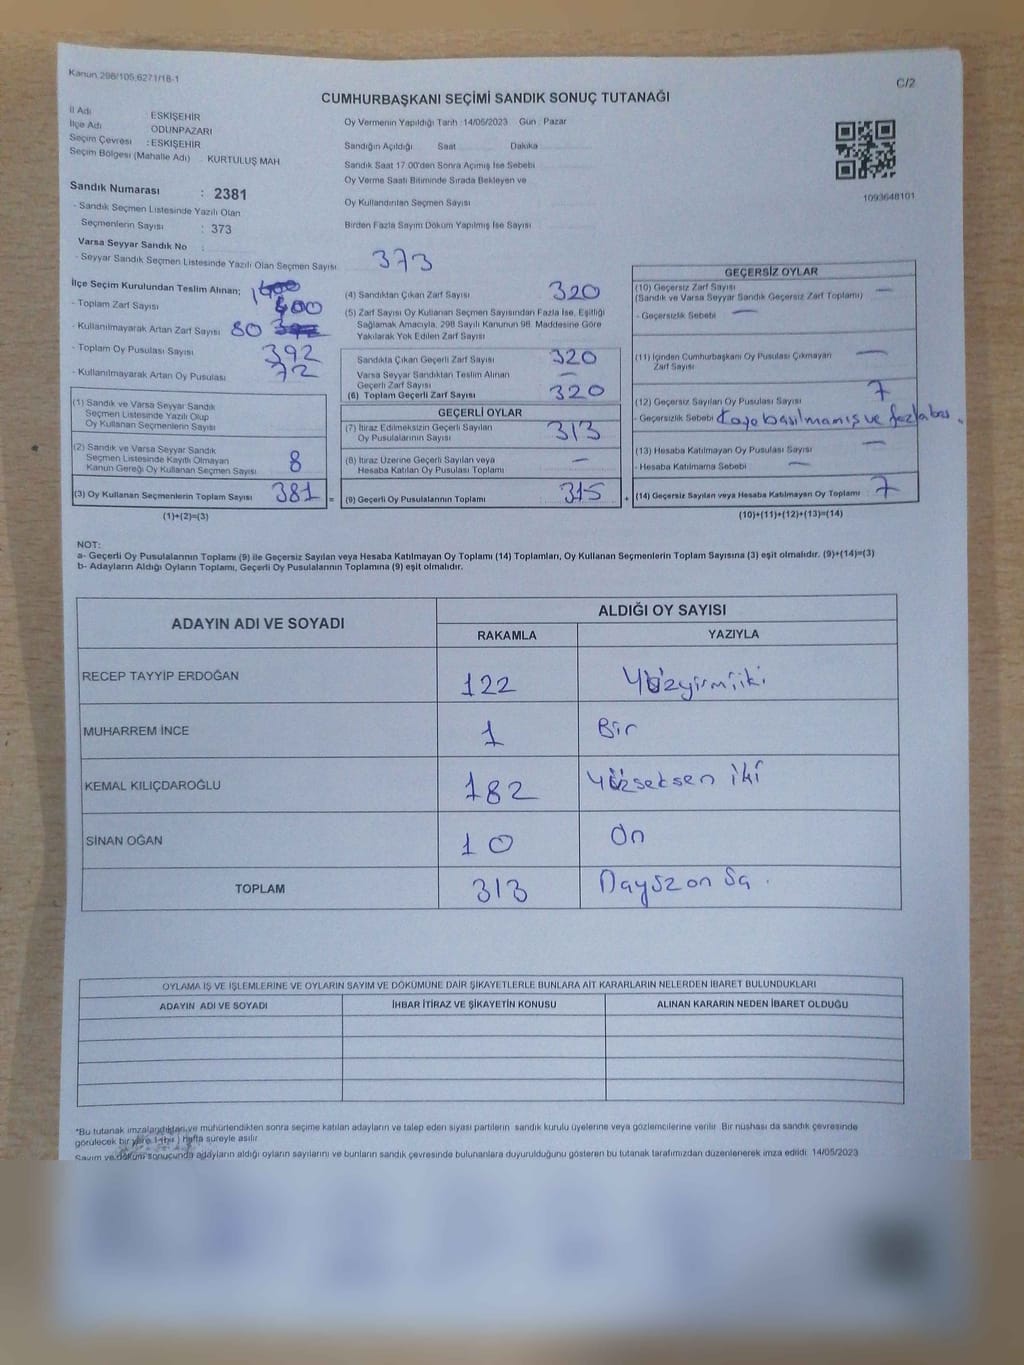 Kanun.298/105,6271/18-1
C/2
CUMHURBAŞKANI SEÇİMİ SANDIK SONUÇ TUTANAĞI
İl Adı ESKİŞEHİR
İlçe Adı ODUNPAZARI
Seçim Çevresi : ESKİŞEHİR
Seçim Bölgesi (Mahalle Adı) KURTULUŞ MAH
Sandık Numarası : 2381
- Sandık Seçmen Listesinde Yazılı Olan
Seçmenlerin Sayısı : 373
Varsa Seyyar Sandık No
- Seyyar Sandık Seçmen Listesinde Yazılı Olan Seçmen Sayısı 373
Oy Vermenin Yapıldığı Tarih :14/05/2023 Gün : Pazar
Sandığın Açıldığı Saat Dakika
Sandık Saat 17:00'den Sonra Açılmış İse Sebebi
Oy Verme Saati Bitiminde Sırada Bekleyen ve
Oy Kullandırılan Seçmen Sayısı
Birden Fazla Sayım Döküm Yapılmış İse Sayısı
1093648101
İlçe Seçim Kurulundan Teslim Alınan;
- Toplam Zarf Sayısı 400
- Kullanılmayarak Artan Zarf Sayısı 80
- Toplam Oy Pusulası Sayısı 392
- Kullanılmayarak Artan Oy Pusulası 72
(1) Sandık ve Varsa Seyyar Sandık
Seçmen Listesinde Yazılı Olup
Oy Kullanan Seçmenlerin Sayısı
(2) Sandık ve Varsa Seyyar Sandık
Seçmen Listesinde Kayıtlı Olmayan
Kanun Gereği Oy Kullanan Seçmen Sayısı 8
(3) Oy Kullanan Seçmenlerin Toplam Sayısı 381 =
(1)+(2)=(3)
(4) Sandıktan Çıkan Zarf Sayısı 320
(5) Zarf Sayısı Oy Kullanan Seçmen Sayısından Fazla İse, Eşitliği
Sağlamak Amacıyla, 298 Sayılı Kanunun 98. Maddesine Göre
Yakılarak Yok Edilen Zarf Sayısı
Sandıkta Çıkan Geçerli Zarf Sayısı 320
Varsa Seyyar Sandıktan Teslim Alınan
Geçerli Zarf Sayısı —
(6) Toplam Geçerli Zarf Sayısı 320
GEÇERLİ OYLAR
(7) İtiraz Edilmeksizin Geçerli Sayılan
Oy Pusulalarının Sayısı 313
(8) İtiraz Üzerine Geçerli Sayılan veya
Hesaba Katılan Oy Pusulası Toplamı —
(9) Geçerli Oy Pusulalarının Toplamı 315 +
GEÇERSİZ OYLAR
(10) Geçersiz Zarf Sayısı —
(Sandık ve Varsa Seyyar Sandık Geçersiz Zarf Toplamı)
- Geçersizlik Sebebi —
(11) İçinden Cumhurbaşkanı Oy Pusulası Çıkmayan —
Zarf Sayısı
(12) Geçersiz Sayılan Oy Pusulası Sayısı 7
- Geçersizlik Sebebi basılmamış ve fazla
(13) Hesaba Katılmayan Oy Pusulası Sayısı —
- Hesaba Katılmama Sebebi —
(14) Geçersiz Sayılan veya Hesaba Katılmayan Oy Toplamı 7
(10)+(11)+(12)+(13)=(14)
NOT:
a- Geçerli Oy Pusulalarının Toplamı (9) ile Geçersiz Sayılan veya Hesaba Katılmayan Oy Toplamı (14) Toplamları, Oy Kullanan Seçmenlerin Toplam Sayısına (3) eşit olmalıdır. (9)+(14)=(3)
b- Adayların Aldığı Oyların Toplamı, Geçerli Oy Pusulalarının Toplamına (9) eşit olmalıdır.
ADAYIN ADI VE SOYADI ALDIĞI OY SAYISI
RAKAMLA YAZIYLA
RECEP TAYYİP ERDOĞAN 122 Yüzyirmiiki
MUHARREM İNCE 1 Bir
KEMAL KILIÇDAROĞLU 182 Yüzseksen iki
SİNAN OĞAN 10 On
TOPLAM 313
OYLAMA İŞ VE İŞLEMLERİNE VE OYLARIN SAYIM VE DÖKÜMÜNE DAİR ŞİKAYETLERLE BUNLARA AİT KARARLARIN NELERDEN İBARET BULUNDUKLARI
ADAYIN ADI VE SOYADI İHBAR İTİRAZ VE ŞİKAYETİN KONUSU ALINAN KARARIN NEDEN İBARET OLDUĞU
*Bu tutanak imzalandıktan ve mühürlendikten sonra seçime katılan adayların ve talep eden siyasi partilerin sandık kurulu üyelerine veya gözlemcilerine verilir. Bir nüshası da sandık çevresinde
görülecek bir yere 1 (bir) hafta süreyle asılır.
Sayım ve döküm sonucunda adayların aldığı oyların sayılarını ve bunların sandık çevresinde bulunanlara duyurulduğunu gösteren bu tutanak tarafımızdan düzenlenerek imza edildi. 14/05/2023